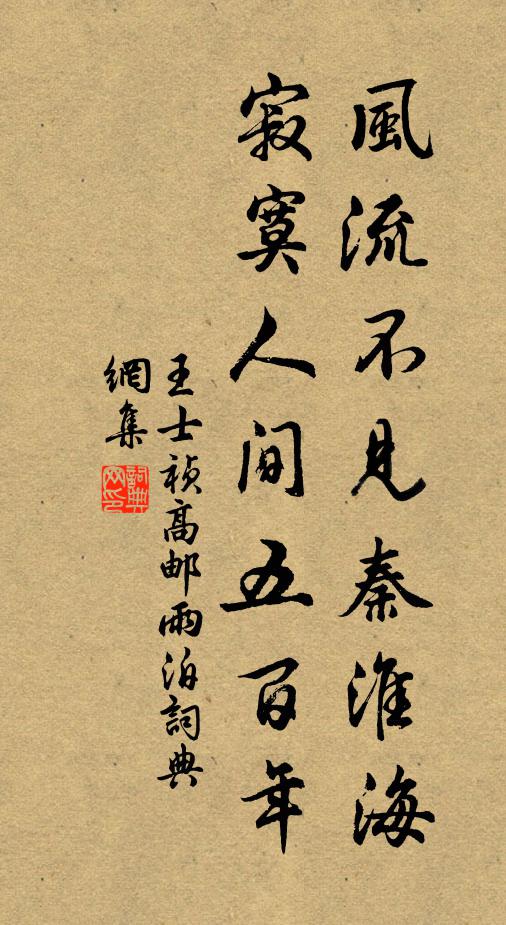 風流不見秦淮海
寂寞人間五百年
王士禎高邮雨泊詞典
網集
詞典
网印